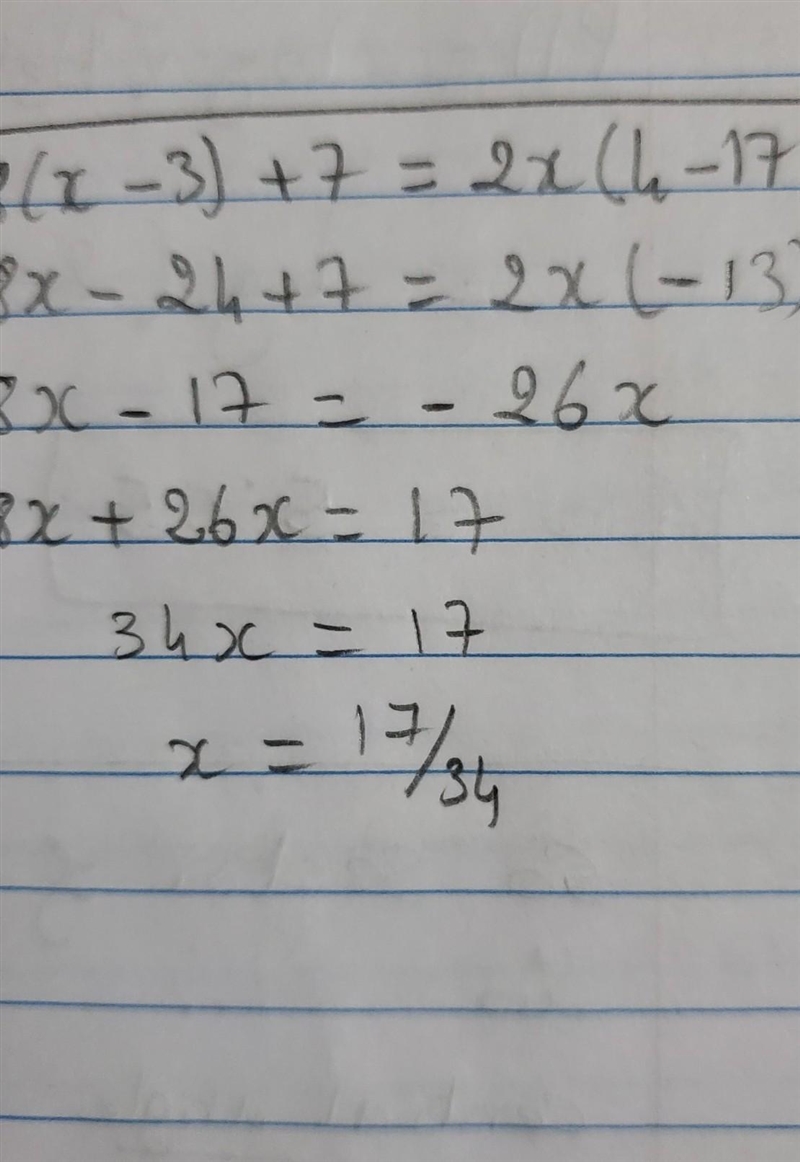 8(x - 3) + 7 = 2x(4 - 17
8x - 24 + 7 = 2x(-13)
8x - 17 = - 26x
8x + 26x = 17
34x = 17
x = 17/34